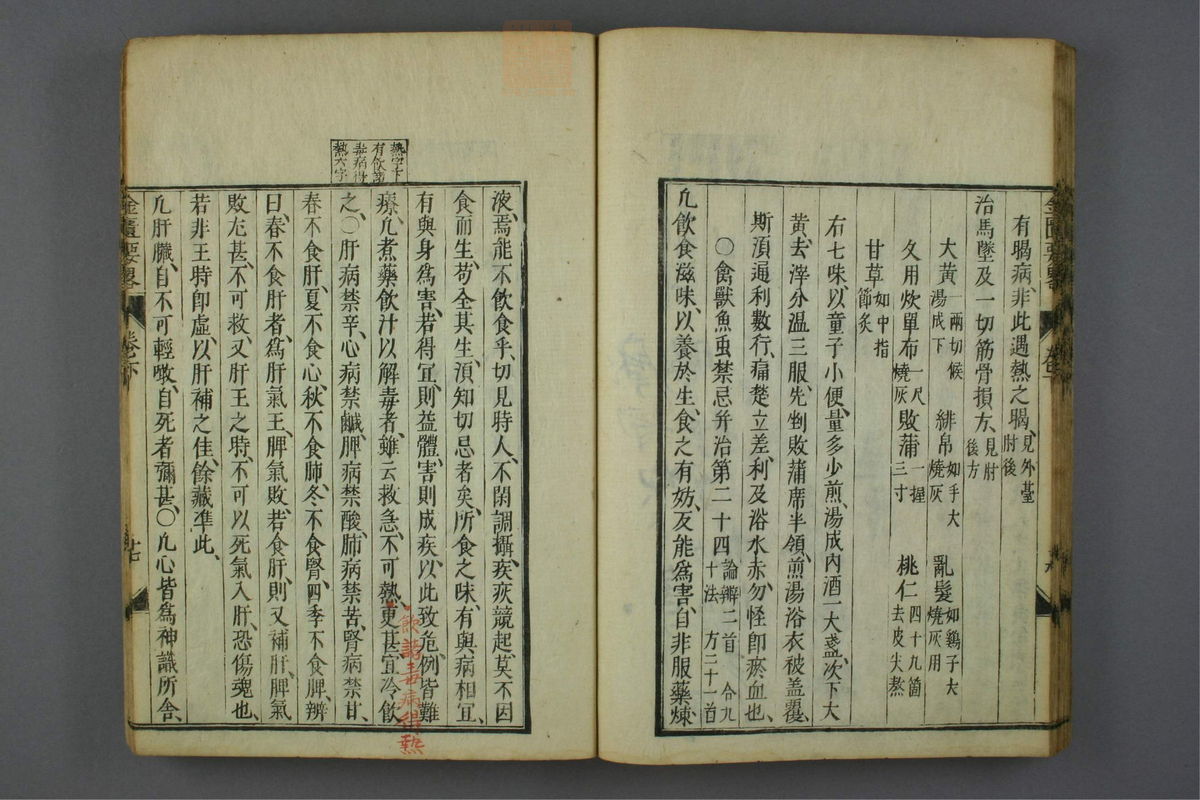 有暍病、非此遇熱之暍、見外臺肘後
治馬墜及一切筋骨損方、見肘後方
大黃一兩切候湯成下 緋帛如手大燒灰 亂髮如鷄子大燒灰用
久用炊單布一尺燒灰 敗蒲一握三寸 桃仁四十九箇去皮尖熬
甘草如中指節炙
右七味、以童子小便、量多少煎、湯成内酒一大盞、次下大
黃、去滓分溫三服、先剉敗蒲席半領、煎湯浴衣被盖覆、
斯湏通利數行、痛楚立差、利及浴水赤、勿怪卽瘀血也、
〇禽獸魚虫禁忌幷治第二十四論辯二首 合九十法 方二十一首
凢飮食滋味、以養於生、食之有妨、反能爲害、自非服藥煉
金匱要畧
卷下
液、焉能不飮食乎、切見時人、不閑調攝、疾疢競起莫不因
食而生、苟全其生、湏知切忌者矣、所食之味、有與病相宜、
有與身爲害、若得宜、則益體、害則成疾、以此致危、例皆難
療、凢煮藥飮汁以解毒者、雖云救急、不可熱、更甚宜冷飮
之、〇肝病禁辛、心病禁鹹、脾病禁酸、肺病禁苦、腎病禁甘、
春不食肝、夏不食心、秋不食肺、冬不食腎、四季不食脾、辨
曰、春不食肝者、爲肝氣王、脾氣敗、若食肝、則又補肝、脾氣
敗尤甚、不可救、又肝王之時、不可以死氣入肝、恐傷魂也、
若非王時卽虛、以肝補之佳、餘藏凖此、
凢肝臟、自不可輕噉、自死者彌甚、〇凢心皆爲神識所舍、
熱字下
有飮諸
毒病得
熱六字
飮諸毒病得熱
金匱要畧
卷下
十七